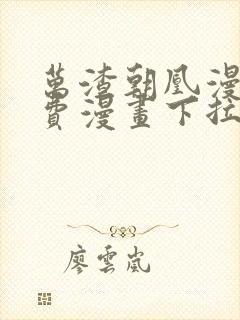 萬渣朝凰漫
費漫畫下拉
廖雲嵐